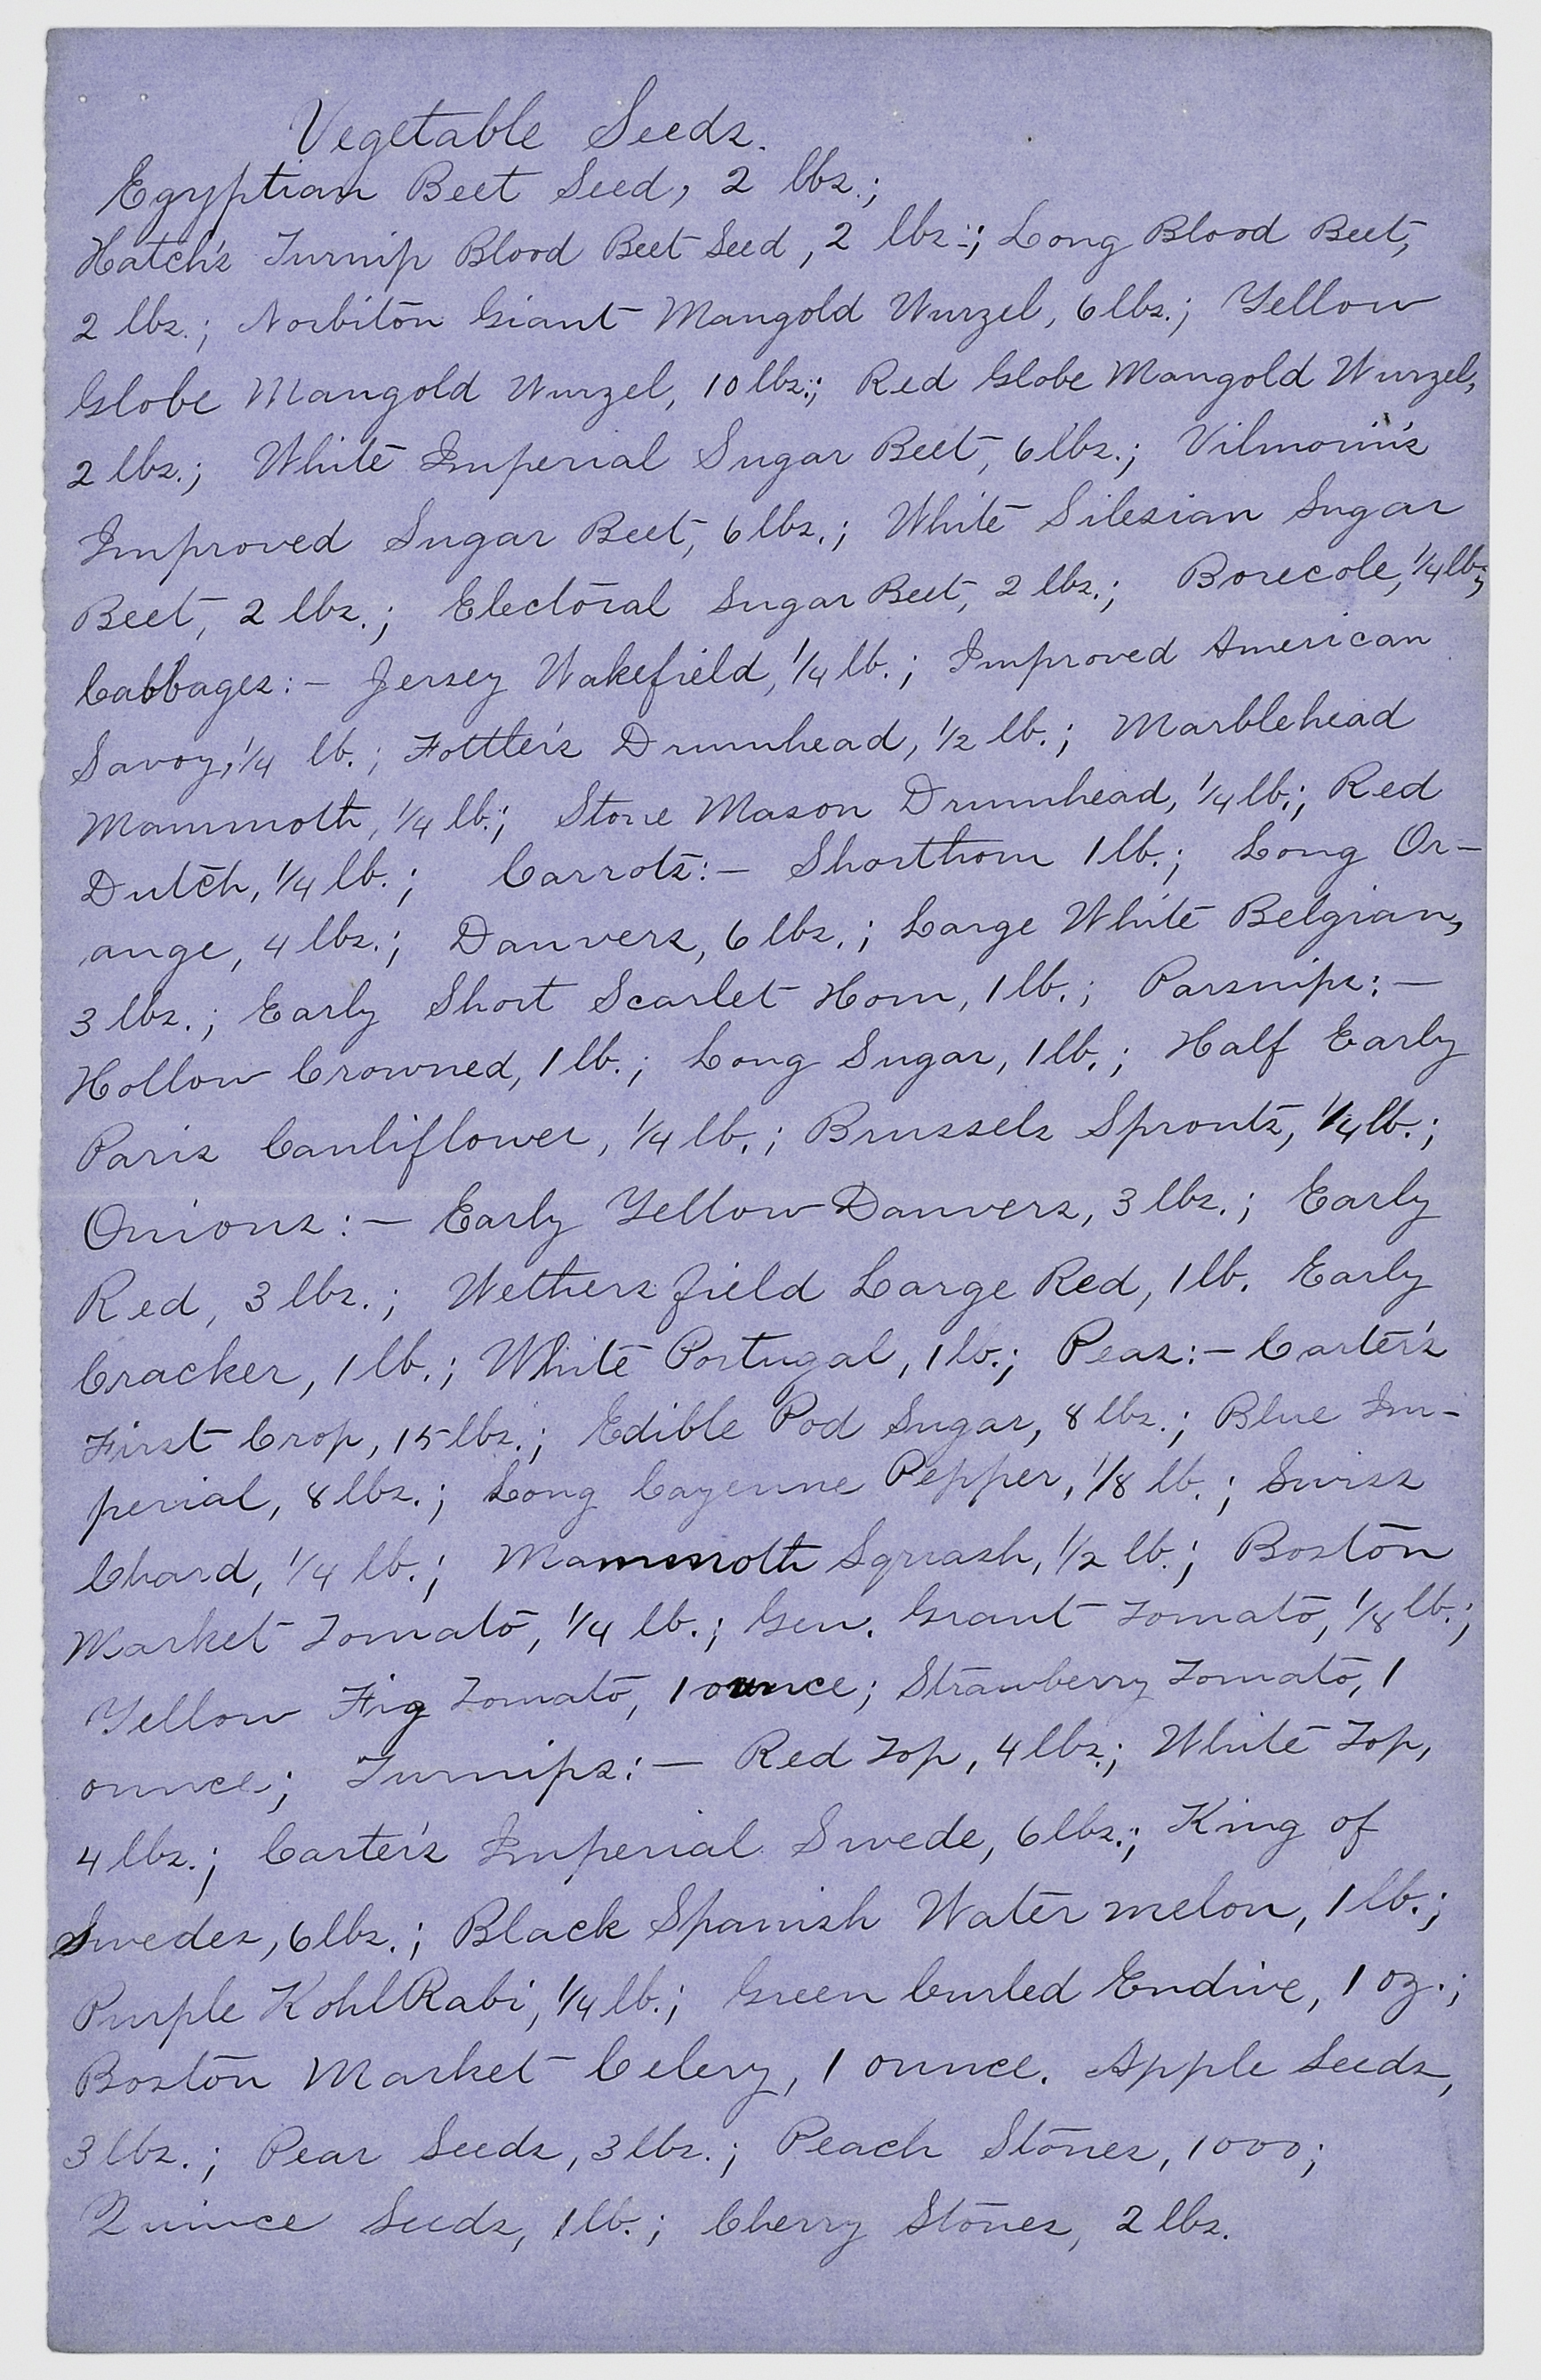 Vegetable Seeds.
Egyptian Beet Seed, 2 lbs.;
Hatch's Turnip Blood Beet Seed, 2 lbs.; Long Blood Beet,
2 lbs.; Norbiton Giant Mangold Wurzel, 6 lbs.; Yellow
Globe Mangold Wurzel, 10 lbs.; Red Globe Mangold Wurzel,
2 lbs.; White Imperial Sugar Beet, 6 lbs.; Vilmorin's
Improved Sugar Beet, 6 lbs.; White Silesian Sugar
Beet, 2 lbs.; Electoral Sugar Beet, 2 lbs.; Borecole, 1/4 lb.;
Cabbages:— Jersey Wakefield, 1/4 lb.; Improved American
Savoy, 1/4 lb.; Fottler's Drumhead, 1/2 lb.; Marblehead
Mammoth, 1/4 lb.; Stone Mason Drumhead, 1/4 lb.; Red
Dutch, 1/4 lb.; Carrots:— Shorthorn 1 lb.; Long Or-
ange, 4 lbs.; Danvers, 6 lbs.; Large White Belgian,
3 lbs.; Early Short Scarlet Horn, 1 lb.; Parsnips:—
Hollow Crowned, 1 lb.; Long Sugar, 1 lb.; Half Early
Paris Cauliflower, 1/4 lb.; Brussels Sprouts, 1/4 lb.;
Onions:— Early Yellow Danvers, 3 lbs.; Early
Red, 3 lbs.; Wethersfield Large Red, 1 lb. Early
Cracker, 1 lb.; White Portugal, 1 lb.; Peas:— Carter's
First Crop, 15 lbs.; Edible Pod Sugar, 8 lbs.; Blue Im-
perial, 8 lbs.; Long Cayenne Pepper, 1/8 lb.; Swiss
Chard, 1/4 lb.; Mammoth Squash, 1/2 lb.; Boston
Market Tomato, 1/4 lb.; Gen. Grant Tomato, 1/8 lb.;
Yellow Fig Tomato, 1 ounce; Strawberry Tomato, 1
ounce; Turnips:— Red Top, 4 lbs.; White Top,
4 lbs.; Carter's Imperial Swede, 6 lbs.; King of
Swedes, 6 lbs.; Black Spanish Water melon, 1 lb.;
Purple KohlRabi, 1/4 lb.; Green Curled Endive, 1 oz.;
Boston Market Celery, 1 ounce. Apple Seeds,
3 lbs.; Pear Seeds, 3 lbs.; Peach Stones, 1000;
Quince Seeds, 1 lb.; Cherry Stones, 2 lbs.